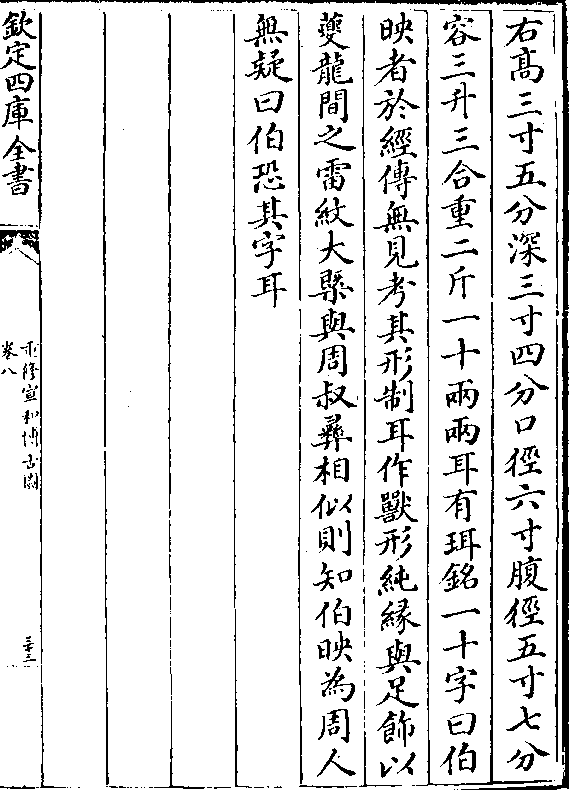 右髙三寸五分深三寸四分口徑六寸腹徑五寸七分
容三升三合重二斤一十兩兩耳有珥銘一十字曰伯
映者於經傳無見考其形制耳作獸形純縁與足飾以
䕫龍間之雷紋大槩與周叔彞相似則知伯映為周人
無疑曰伯恐其字耳
欽定四庫全書
重修宣和博古圖
卷八
三十三